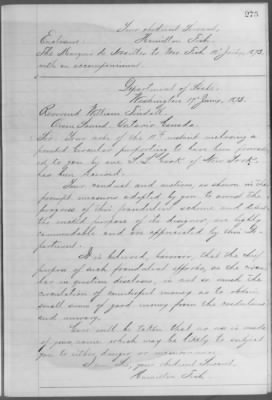 275
Your obedient Servant,
Enclosure. Hamilton Fish.
The Marquis de Noailles to Mr. Fish 12 June, 1873.
with an accompaniment.
Department of State,
Washington 17 June, 1873.
Reverend William
Owen Sound, Ontario Canada.
Sir: Your note of the instant enclosing a
printed Circular purporting to have been forward-
ed to you by one of New York,
has been received.
Your conduct and motives, as shown in the
prompt measures adopted by you to arrest the
progress of this fraudulent scheme and defeat
the wicked purpose of its designer, are highly
commendable and are appreciated by this De-
partment.
It is believed, however, that the chief
purpose of such fraudulent efforts, as the circu-
lar in question discloses, is not so much the
circulation of counterfeit money as to obtain
small sums of good money from the credulous
and unwary.
Care will be taken that no use is made
of your name which may be likely to subject
you to either danger or inconvenience.
I am, Sir, your obedient Servant,
Hamilton Fish.